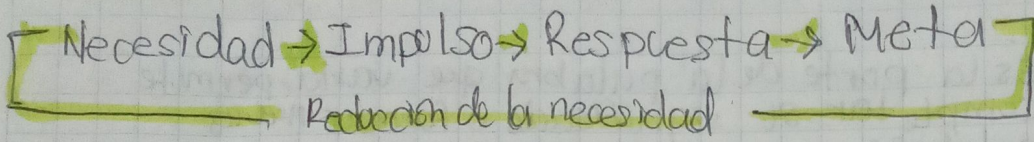 Necesidad → Impulso → Respuesta → Meta
Reducción de la necesidad